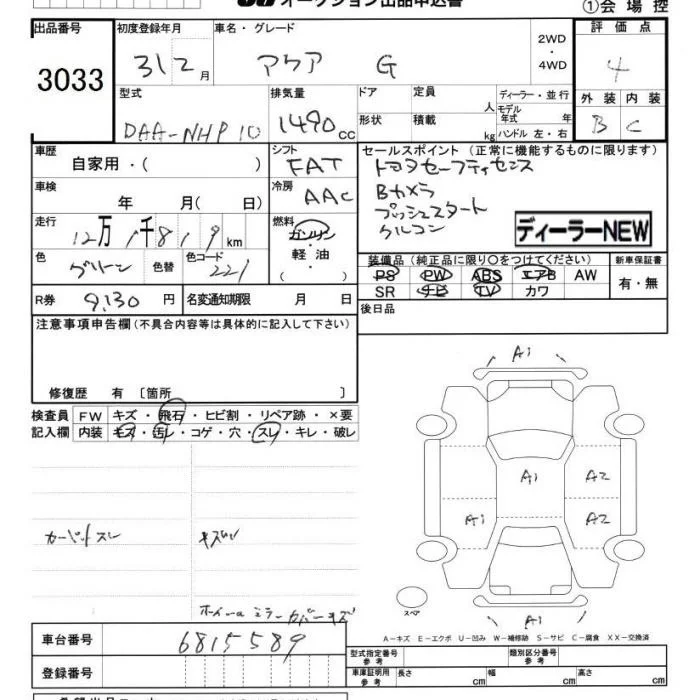 オークション出品申込書
①会場控
出品番号 初度登録年月 車名・グレード 評価点
3033 31 2月 アクア G 2WD ・ 4WD 4
型式 排気量 ドア 定員 人 ディーラー・並行 外装 内装
DAA-NHP10 1490cc 形状 積載 kg モデル年式 年 ハンドル 左・右 B C
車歴 シフト セールスポイント (正常に機能するものに限ります)
自家用・( ) FAT トヨタセーフティセンス
車検 冷房 Bカメラ
年 月( 日) AAC プッシュスタート
走行 燃料 クルコン
12万1千819km ガソリン ディーラーNEW
軽油
( )
色 色替 色コード 装備品 (純正品に限り〇をつけてください) 新車保証書
グリーン 221 PS PW ABS エアB AW 有・無
SR ナビ TV カワ
R券 9,130円 名変通知期限 月 日 後日品
注意事項申告欄(不具合内容等は具体的に記入して下さい)
修復歴 有 〔箇所 〕
検査員 FW キズ・飛石・ヒビ割・リペア跡・×要
記入欄 内装 キズ・汚レ・コゲ・穴・スレ・キレ・破レ
A1
A1 A2
A1 A2
カーペットスレ
ホイール ミラーカバーキズ
A1
スペア
A-キズ E-エクボ U-凹み W-補修跡 S-サビ C-腐食 XX-交換済
車台番号 6815589
型式指定番号 参考 類別区分番号 参考
登録番号 車庫証明用 参考 長さ cm 幅 cm 高さ cm